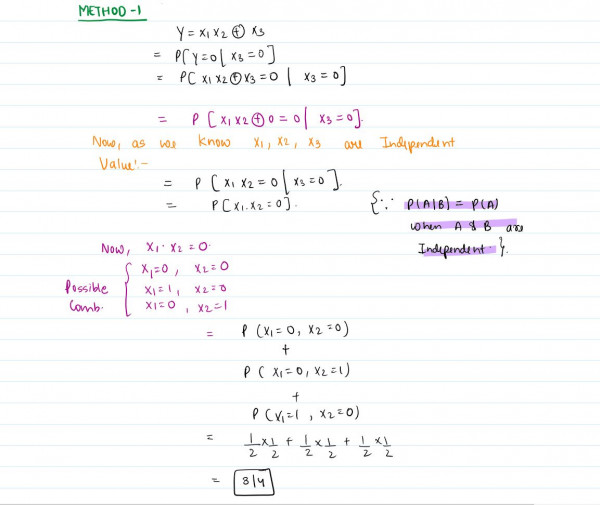 METHOD-1
Y = x1 x2 ⊕ x3
= P[Y=0 | x3=0]
= P[ x1 x2 ⊕ x3 = 0 | x3 = 0]
= P [ x1 x2 ⊕ 0 = 0 | x3 = 0].
Now, as we know x1, x2, x3 are Independent
Value:-
= P [ x1 x2 = 0 | x3 = 0 ].
= P[ x1. x2 = 0 ]. {∵ P(A|B) = P(A)
when A & B are
Independent }.
Now, x1 · x2 = 0.
Possible Comb. { x1=0 , x2=0
x1=1, x2=0
x1=0 , x2=1
= P (x1=0, x2=0)
+
P ( x1=0, x2=1)
+
P (x1=1 , x2=0)
= 1/2 x 1/2 + 1/2 x 1/2 + 1/2 x 1/2
= 3/4